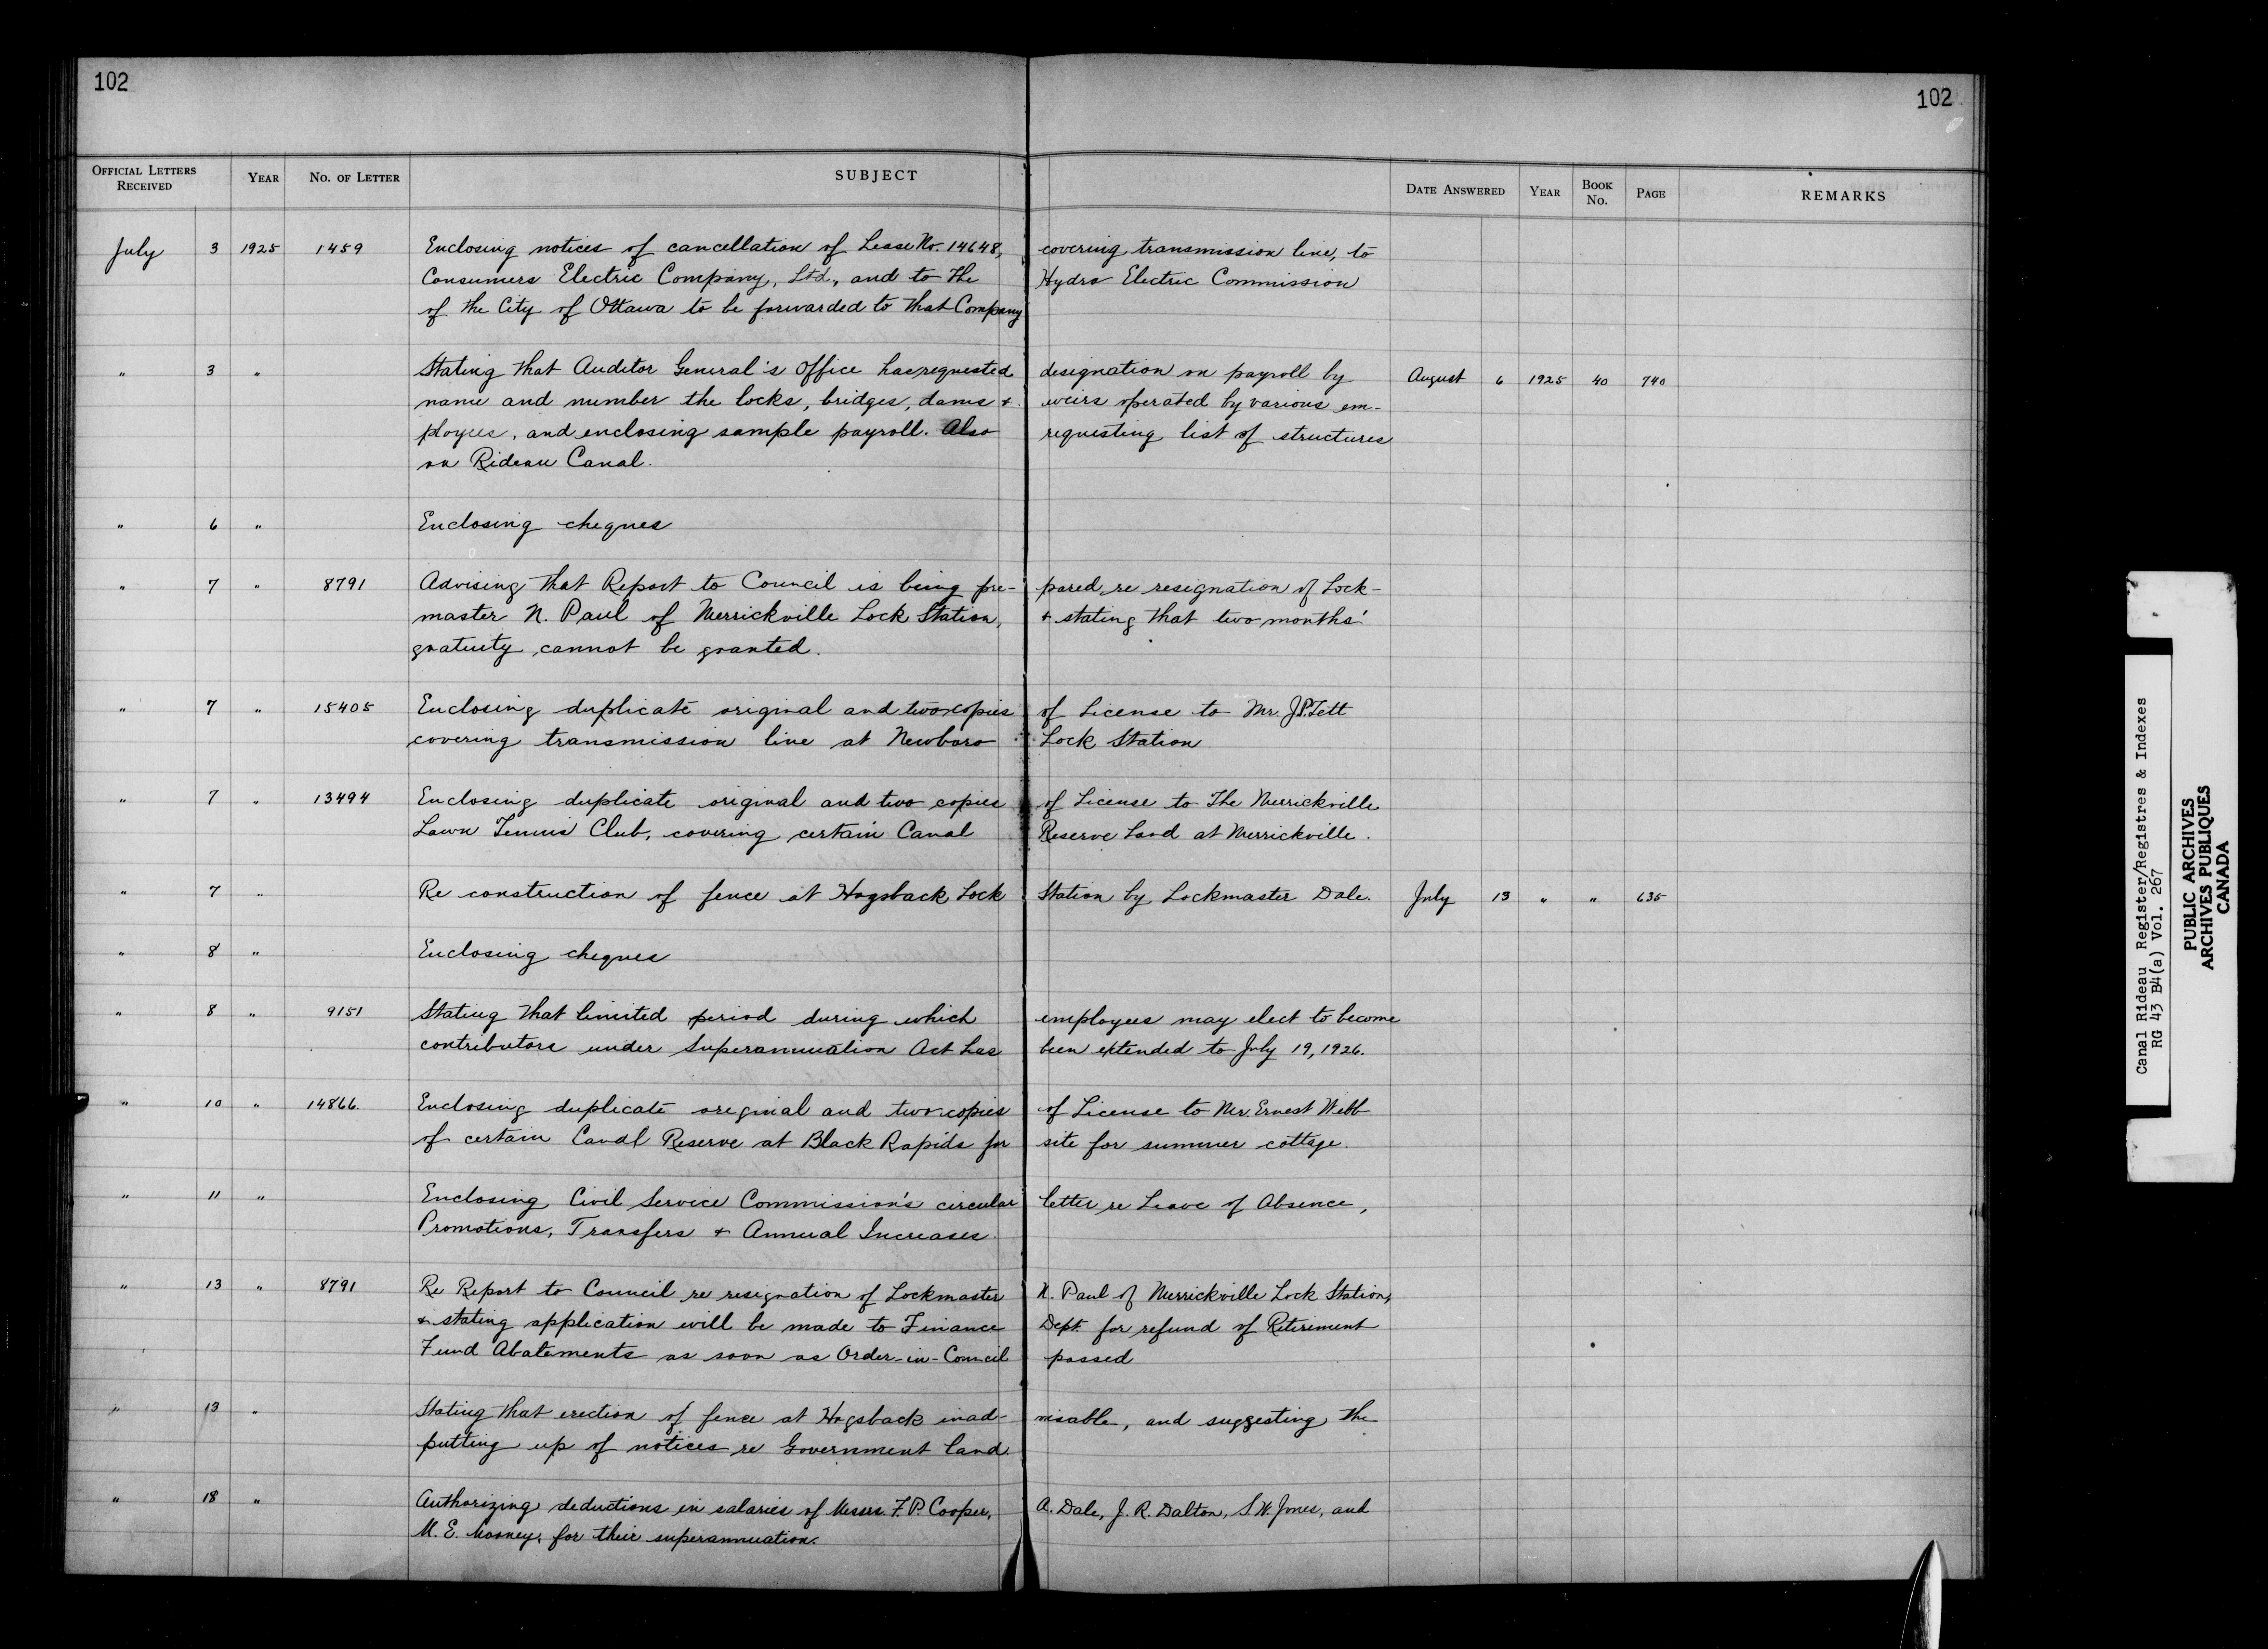 102
102
OFFICIAL LETTERS RECEIVED YEAR NO. OF LETTER SUBJECT DATE ANSWERED YEAR BOOK NO. PAGE REMARKS
July 3 1925 1459 Enclosing notices of cancellation of Lease No. 14648, covering transmission line, to
Consumers Electric Company, Ltd., and to the Hydro Electric Commission
of the City of Ottawa to be forwarded to that Company
" 3 " Stating that Auditor General's Office has requested designation on payroll by August 6 1925 40 740
name and number the locks, bridges, dams + weirs operated by various em-
ployees, and enclosing sample payroll. Also requesting list of structures
on Rideau Canal.
" 6 " Enclosing cheques
" 7 " 8791 Advising that Report to Council is being pre- pared, re resignation of Lock-
master N. Paul of Merrickville Lock Station, + stating that two months'
gratuity cannot be granted.
" 7 " 15405 Enclosing duplicate original and two copies of License to Mr. J.P. Tett
covering transmission line at Newboro Lock Station
" 7 " 13494 Enclosing duplicate original and two copies of License to The Merrickville
Lawn Tennis Club, covering certain Canal Reserve Land at Merrickville.
" 7 " Re construction of fence at Hogsback Lock Station by Lockmaster Dale. July 13 " " 635
" 8 " Enclosing cheques
" 8 " 9151 Stating that limited period during which employees may elect to become
contributors under Superannuation Act has been extended to July 19, 1926.
" 10 " 14866. Enclosing duplicate original and two copies of License to Mr. Ernest Webb
of certain Canal Reserve at Black Rapids for site for summer cottage.
" 11 " Enclosing Civil Service Commission's circular letter re Leave of Absence,
Promotions, Transfers + Annual Increases.
" 13 " 8791 Re Report to Council re resignation of Lockmaster N. Paul of Merrickville Lock Station,
+ stating application will be made to Finance Dept. for refund of Retirement
Fund Abatements as soon as Order-in-Council passed
" 13 " Stating that erection of fence at Hogsback inad- visable, and suggesting the
putting up of notices re Government land.
" 18 " Authorizing deductions in salaries of Messrs F.P. Cooper, A. Dale, J. R. Dalton, S.W. Jones, and
M. E. Mooney, for their superannuation.
Canal Rideau Register/Registres & Indexes
RG 43 B4(a) Vol. 267
PUBLIC ARCHIVES
ARCHIVES PUBLIQUES
CANADA